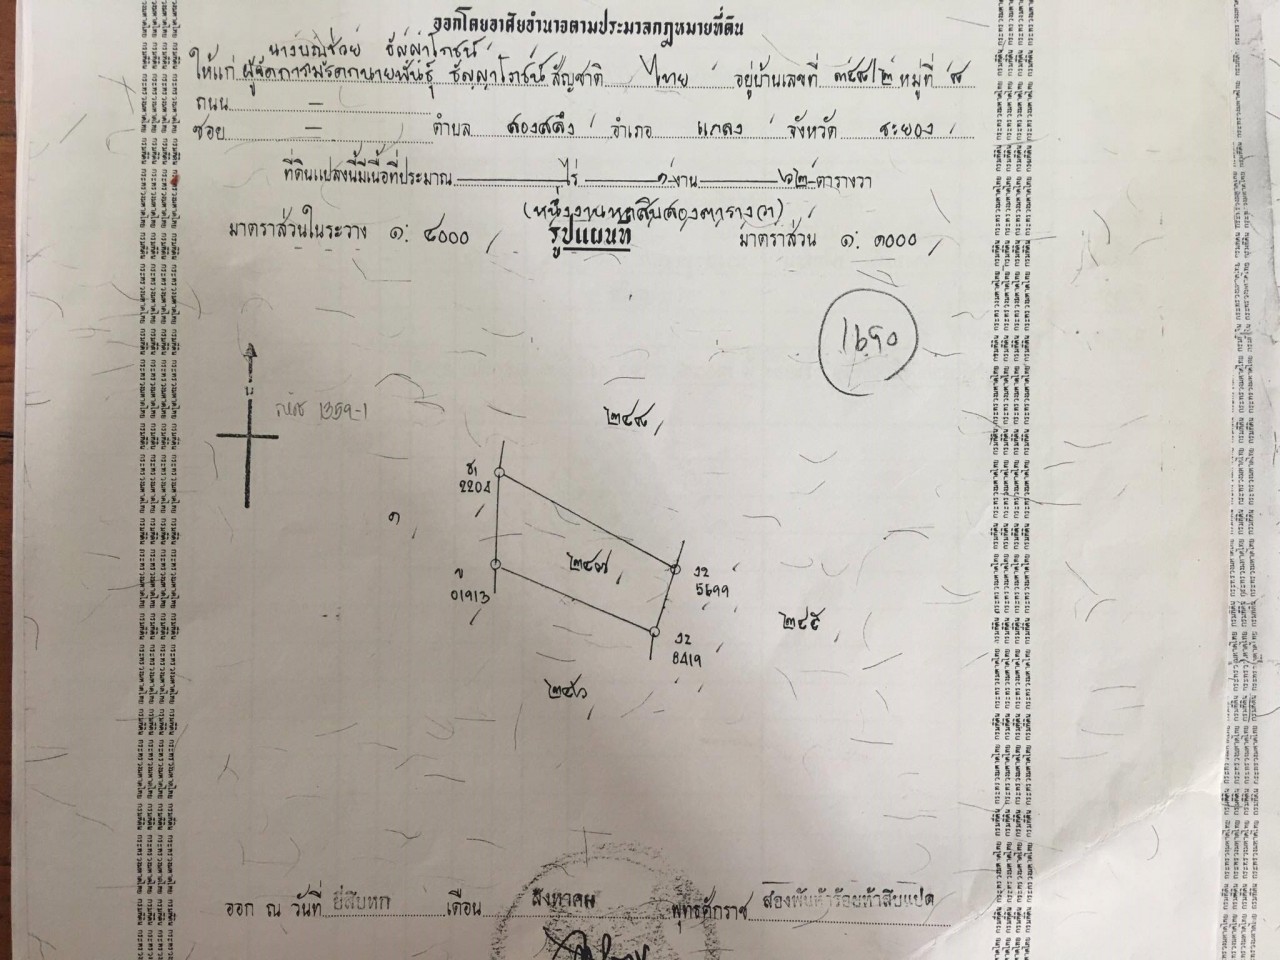 ออกโดยอาศัยอำนาจตามประมวลกฎหมายที่ดิน
นางบุญช่วย ธัญญาโภชน์
ให้แก่ ผู้จัดการมรดกนายพันธุ์ ธัญญาโภชน์ สัญชาติ ไทย อยู่บ้านเลขที่ ๓๕๘/๒ หมู่ที่ ๘
ถนน –
ซอย – ตำบล สองสลึง อำเภอ แกลง จังหวัด ระยอง
ที่ดินแปลงนี้มีเนื้อที่ประมาณ ไร่ ๑ งาน ๖๒ ตารางวา
(หนึ่งงานหกสิบสองตารางวา)
มาตราส่วนในระวาง ๑: ๔๐๐๐ รูปแผนที่ มาตราส่วน ๑: ๑๐๐๐
1690
น
1359-1
๒๔๘
ช1
2204
๑
๒๔๗
ข
01913
ว2
5699
๒๔๕
ว2
8419
๒๔๖
ออก ณ วันที่ ยี่สิบหก เดือน สิงหาคม พุทธศักราช สองพันห้าร้อยห้าสิบแปด